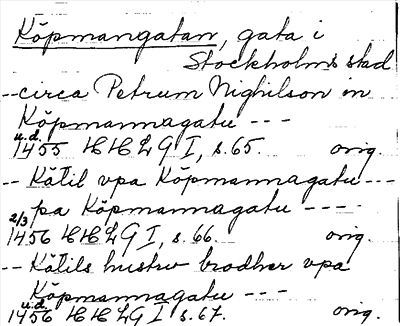 Köpmangatan, gata i
Stockholms stad
--circa Petrum Nighilson in
Köpmannagatu ---
u.d.
1455 HHLG I, s.65. orig.
-- Kätil vpa Köpmannagatu ---
pa Köpmannagatu ----
2/3
1456 HHLG I, s.66. orig.
-- Kätils hustrv brodher vpa
Köpmannagatu ---
u.d.
1456 HHLG I s.67. orig.